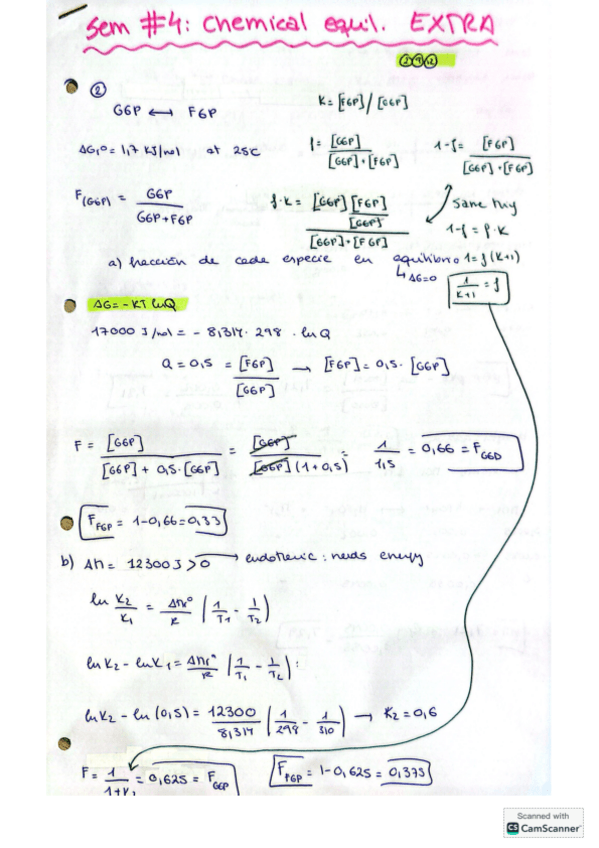 Sem #4: Chemical equil. EXTRA
②
G6P ⟷ F6P
K = [F6P] / [G6P]
ΔG,° = 1,7 KJ/mol at 25C
f = [G6P] / [G6P]+[F6P]
1-f = [F6P] / [G6P]+[F6P]
F(G6P) = G6P / G6P+F6P
f·K = [G6P] [F6P] / [G6P] / [G6P]+[F6P]
Same thing
1-f = f·K
a) fracción de cada especie en equilibrio 1=f(K+1)
↳ ΔG=0
1 / K+1 = f
ΔG = -RT lnQ
17000 J/mol = - 8,314 · 298 · lnQ
Q = 0,5 = [F6P] / [G6P] → [F6P] = 0,5 · [G6P]
F = [G6P] / [G6P] + 0,5·[G6P] = [G6P] / [G6P] (1+0,5) = 1 / 1,5 = 0,66 = F G6P
F F6P = 1-0,66 = 0,33
b) Δh = 12300J > 0 → endothermic: needs energy
ln K2 / K1 = Δhr° / R (1/T1 - 1/T2)
lnK2 - lnK1 = Δhr° / R (1/T1 - 1/T2) :
lnK2 - ln(0,5) = 12300 / 8,314 (1/298 - 1/310) → K2 = 0,6
F = 1 / 1+K = 0,625 = F G6P
F F6P = 1-0,625 = 0,373
Scanned with
CS CamScanner